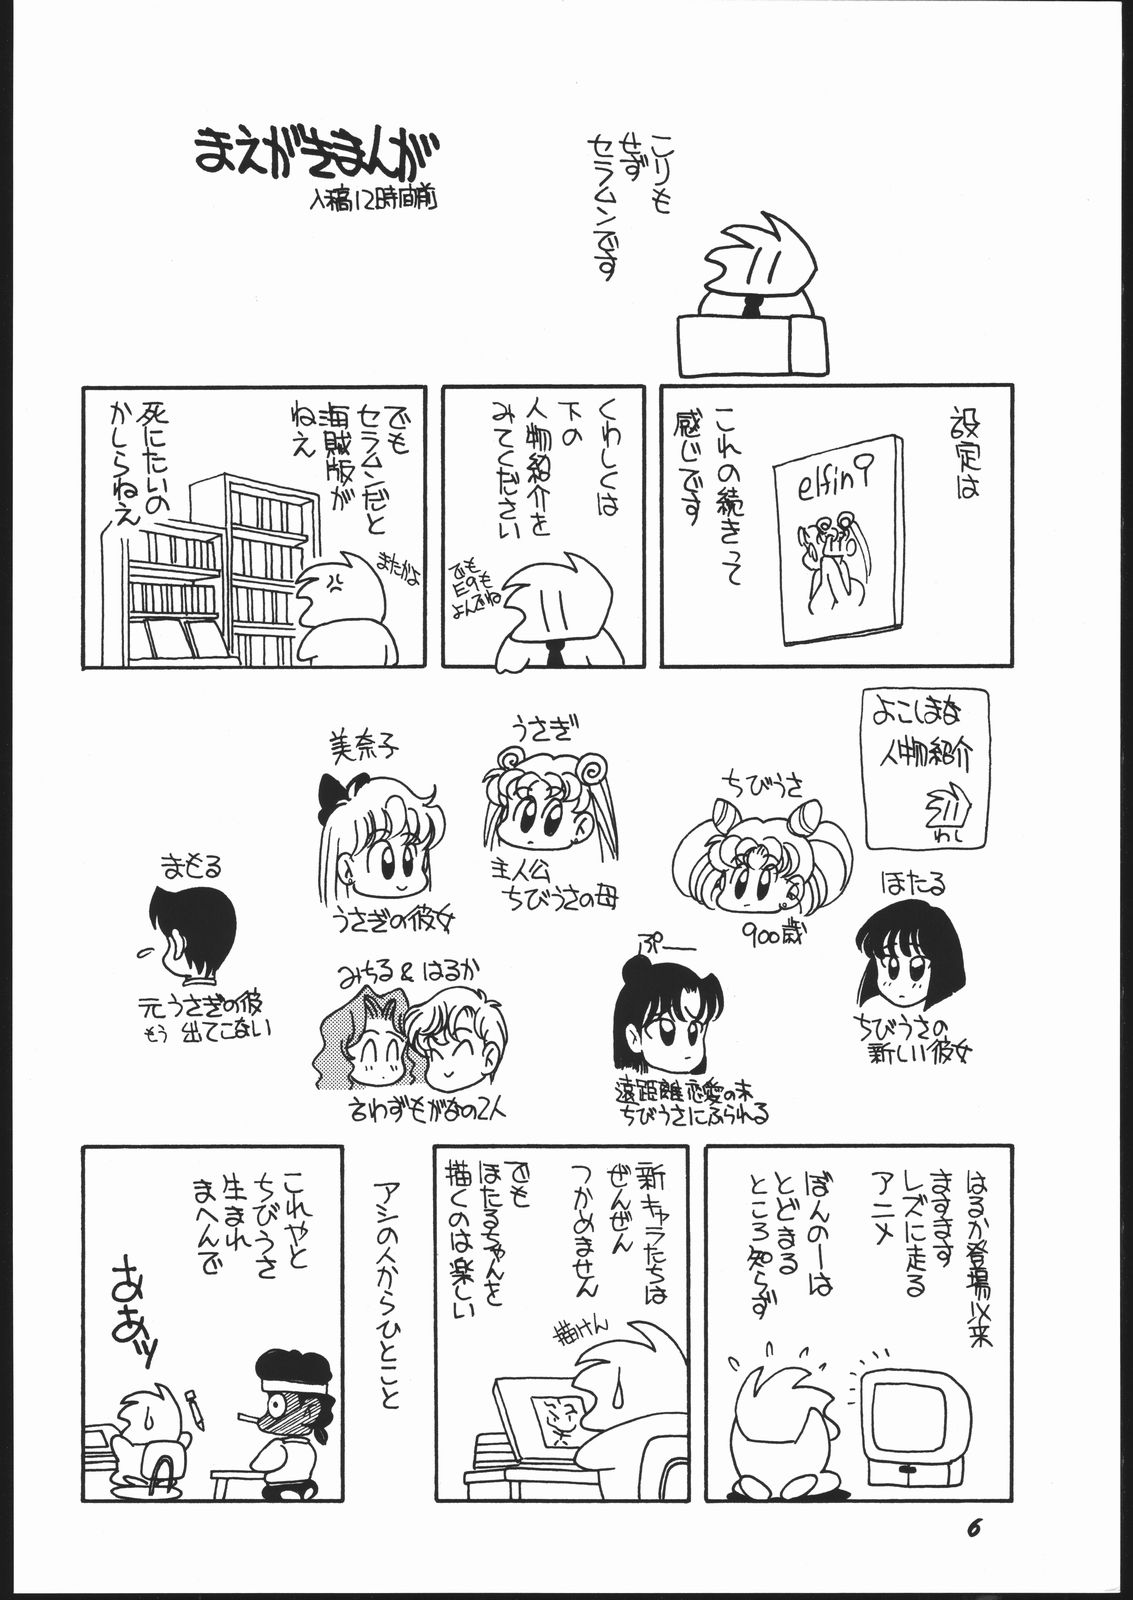 まえがきまんが
入稿12時間前
こりも
せず
セラムンです
設定は
elfin
これの続きって
感じです
くわしくは
下の
人物紹介を
みてください
でも
E9も
よんでね
でも
セラムンだと
海賊版が
ねえ
死にたいの
かしらねえ
またかよ
よこしまな
人物紹介
わし
ほたる
ちびうさの
新しい彼女
ちびうさ
900歳
うさぎ
主人公
ちびうさの母
美奈子
うさぎの彼女
まもる
元うさぎの彼
もう出てこない
ぷー
遠距離恋愛の末
ちびうさにふられる
みちる&はるか
言わずもがなの2人
はるか登場以来
ますます
レズに走る
アニメ
ぼんのーは
とどまる
ところ知らず
新キャラたちは
ぜんぜん
つかめません
でも
ほたるちゃんを
描くのは楽しい
描けん
アシの人からひとこと
これやと
ちびうさ
生まれ
まへんで
ああッ
6